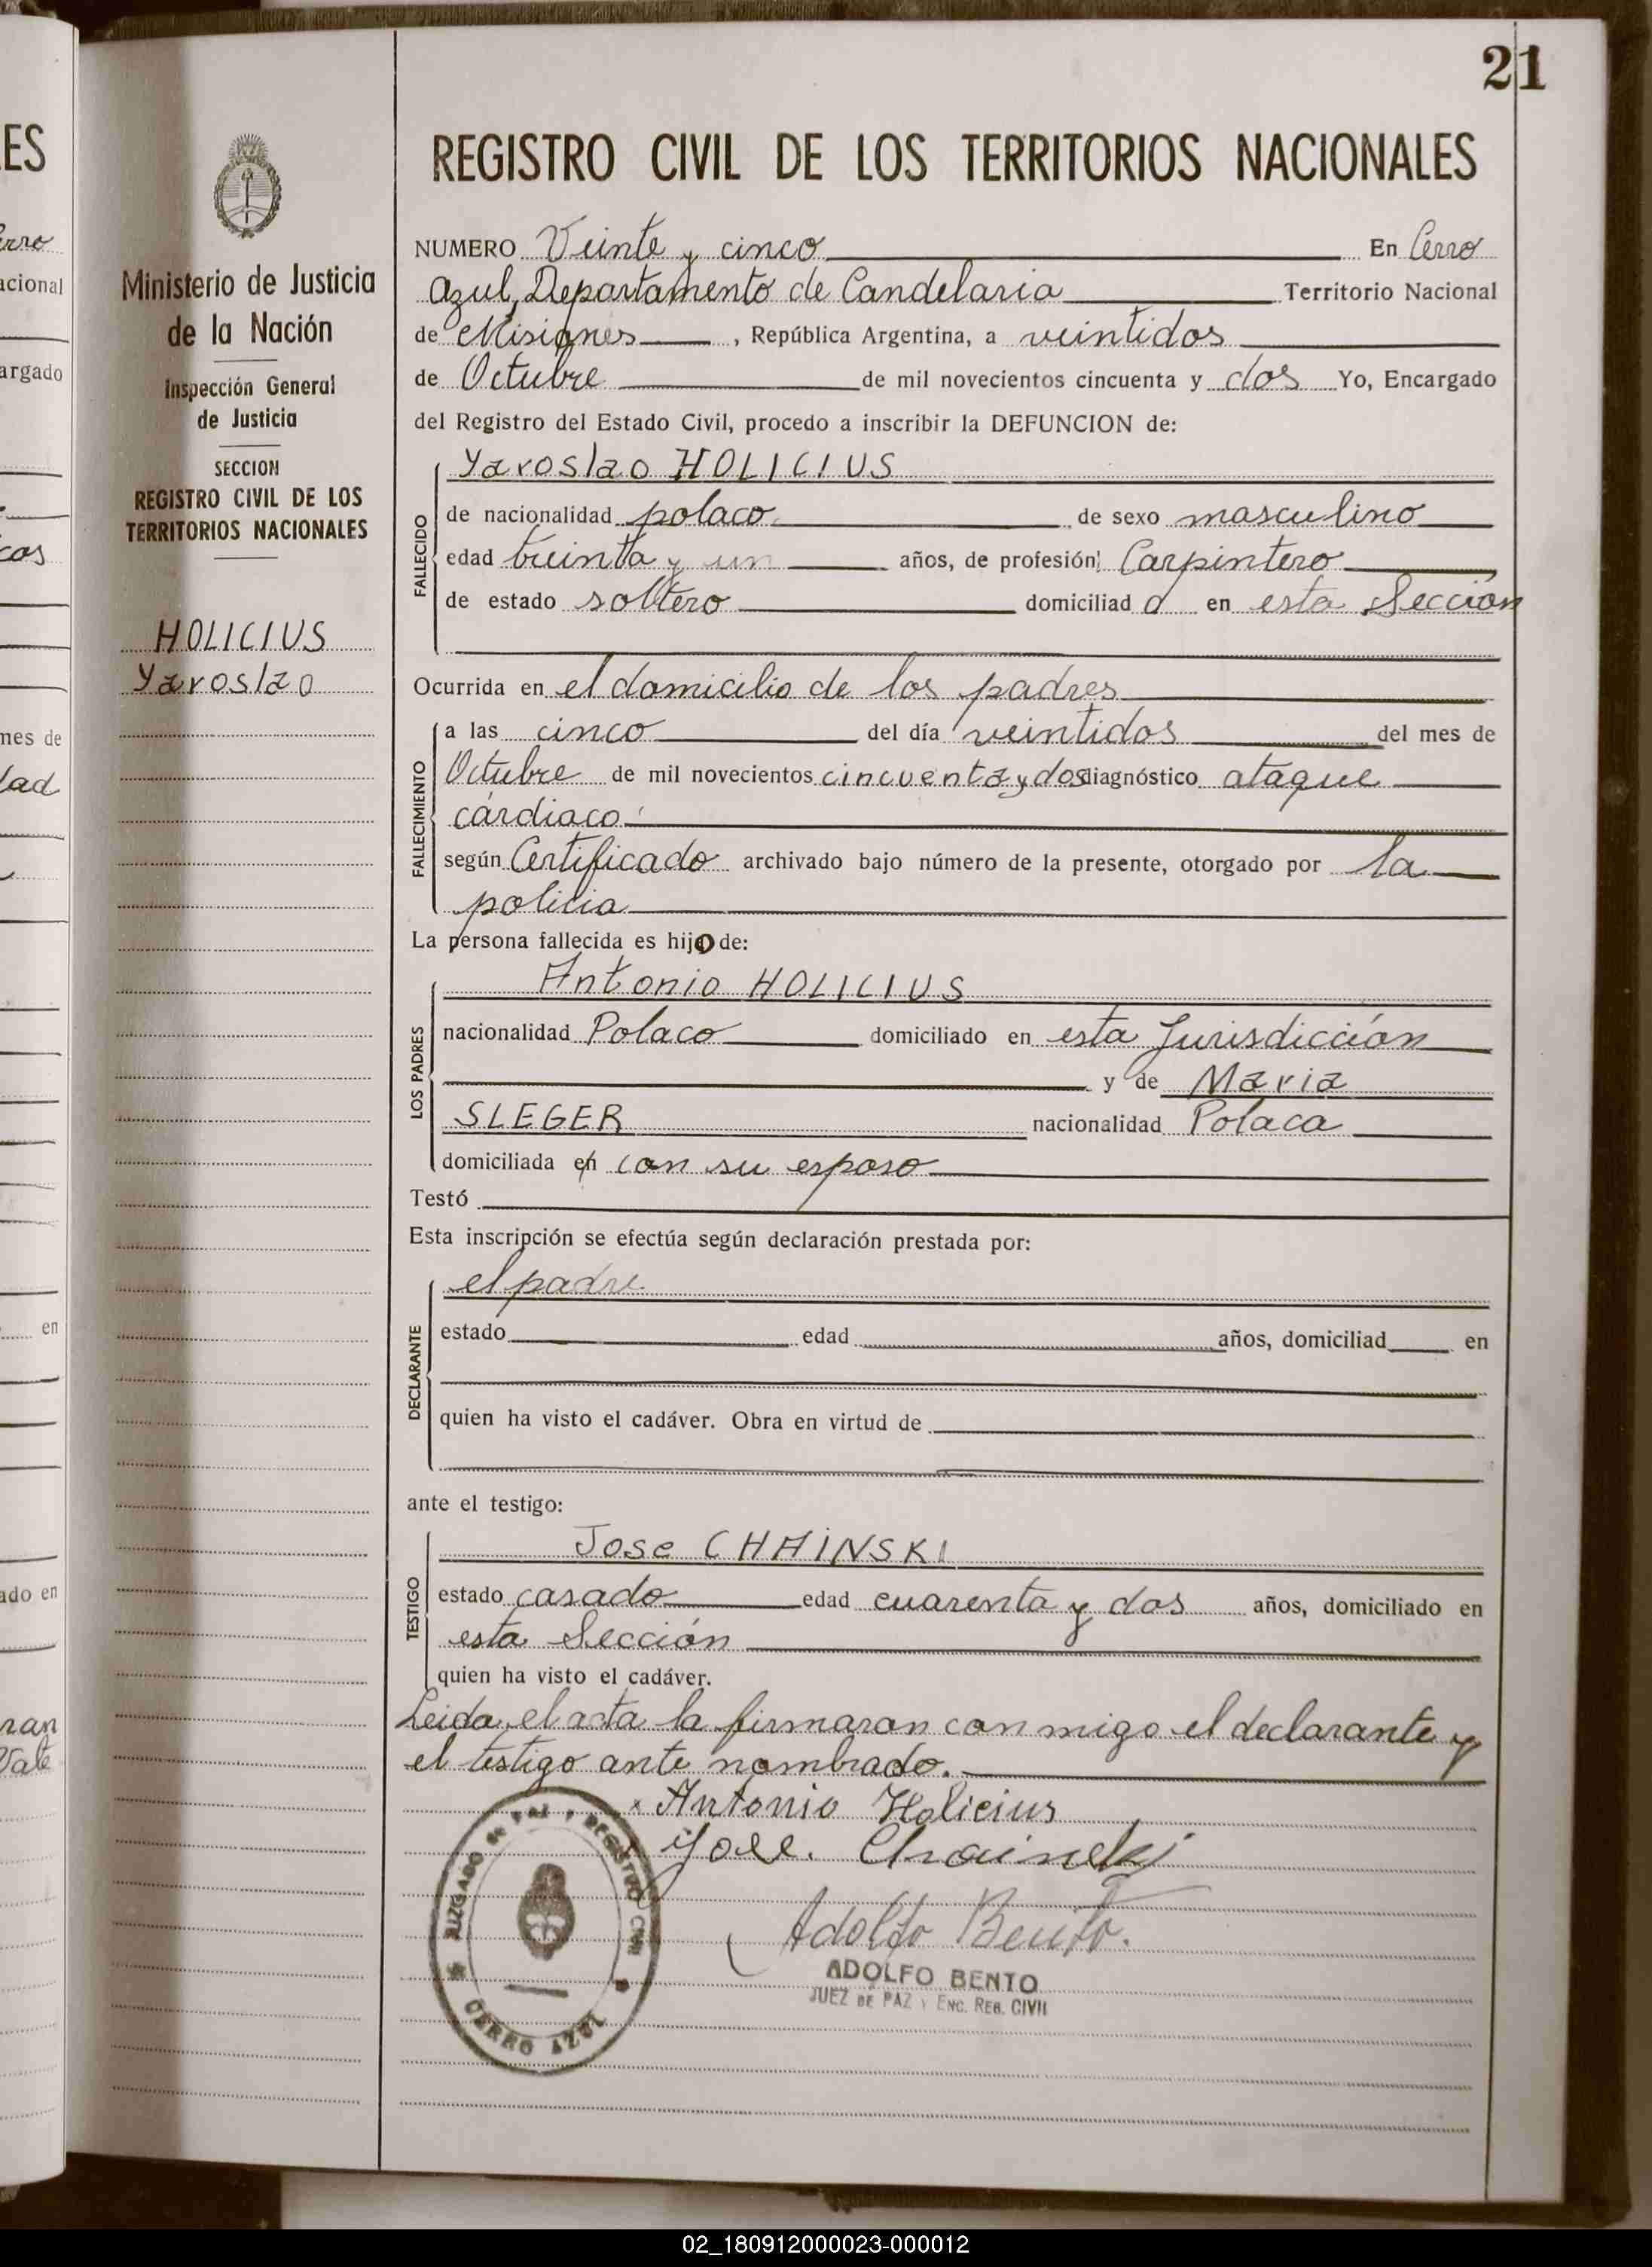 21
REGISTRO CIVIL DE LOS TERRITORIOS NACIONALES
Ministerio de Justicia
de la Nación
Inspección General
de Justicia
SECCION
REGISTRO CIVIL DE LOS
TERRITORIOS NACIONALES
HOLICIUS
Yaroslao
NUMERO Veinte y cinco En Cerro
Azul, Departamento de Candelaria Territorio Nacional
de Misiones, República Argentina, a veintidos
de Octubre de mil novecientos cincuenta y dos Yo, Encargado
del Registro del Estado Civil, procedo a inscribir la DEFUNCION de:
FALLECIDO
Yaroslao HOLICIUS
de nacionalidad polaco de sexo masculino
edad treinta y un años, de profesión Carpintero
de estado soltero domiciliad o en esta Sección
Ocurrida en el domicilio de los padres
FALLECIMIENTO
a las cinco del día veintidos del mes de
Octubre de mil novecientos cincuenta y dos diagnóstico ataque
cárdiaco
según Certificado archivado bajo número de la presente, otorgado por la
policia
La persona fallecida es hijo de:
LOS PADRES
Antonio HOLICIUS
nacionalidad Polaco domiciliado en esta Jurisdicción
y de Maria
SLEGER nacionalidad Polaca
domiciliada en con su esposo
Testó
Esta inscripción se efectúa según declaración prestada por:
DECLARANTE
el padre
estado edad años, domiciliad en
quien ha visto el cadáver. Obra en virtud de
ante el testigo:
TESTIGO
Jose CHAINSKI
estado casado edad cuarenta y dos años, domiciliado en
esta Sección
quien ha visto el cadáver.
Leida el acta la firmaran con migo el declarante y
el testigo ante nombrado.
x Antonio Holicius
Jose. Chainski
Adolfo Bento.
ADOLFO BENTO
JUEZ DE PAZ Y ENC. REG. CIVIL
JUZGADO DE PAZ Y REGISTRO CIVIL
CERRO AZUL
02_180912000023-000012